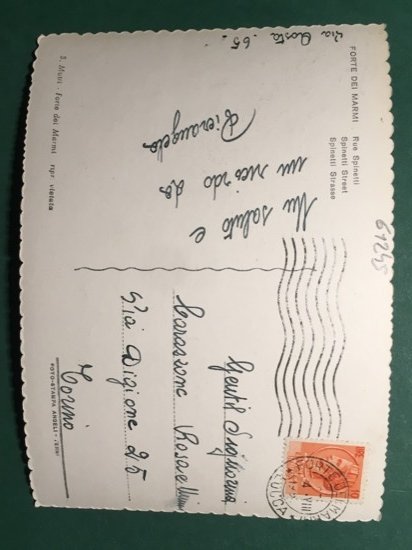 FORTE DEI MARMI Rue Spinetti
Spinetti Street
Spinetti Strasse
Via Aosta 65
Un saluto e
un ricordo da
Pierangelo
S. Muni - Forte dei Marmi ripr. vietata
61245
Gentil Signorina
Rosa
Via Digione 25
Torino
FOTO-STAMPA ANGELI -
FORTE DEI MARMI
LUCCA